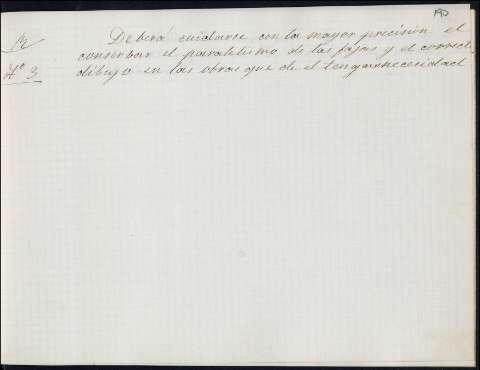 190
Debera cuidarse con la mayor precision el
conserbar el paralelismo de las fajas y el correct
dibujo en las obras que de el tengan necesidad
Nº 3